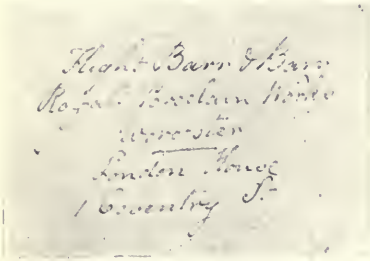 Flight Barr & Barr
Royal Porcelain Works
Worcester
London House
1 Coventry St